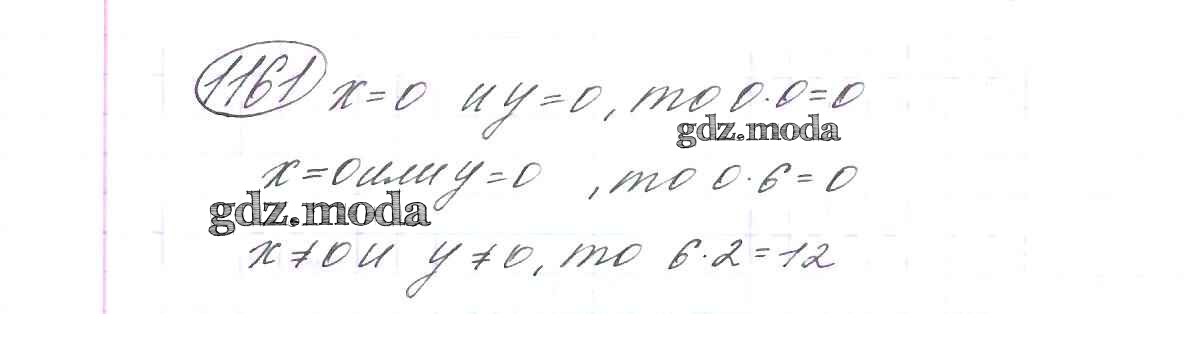 1161 x=0 и y=0, то 0·0=0
gdz.moda
x=0 или y=0 , то 0·6=0
gdz.moda
x≠0 и y≠0, то 6·2=12